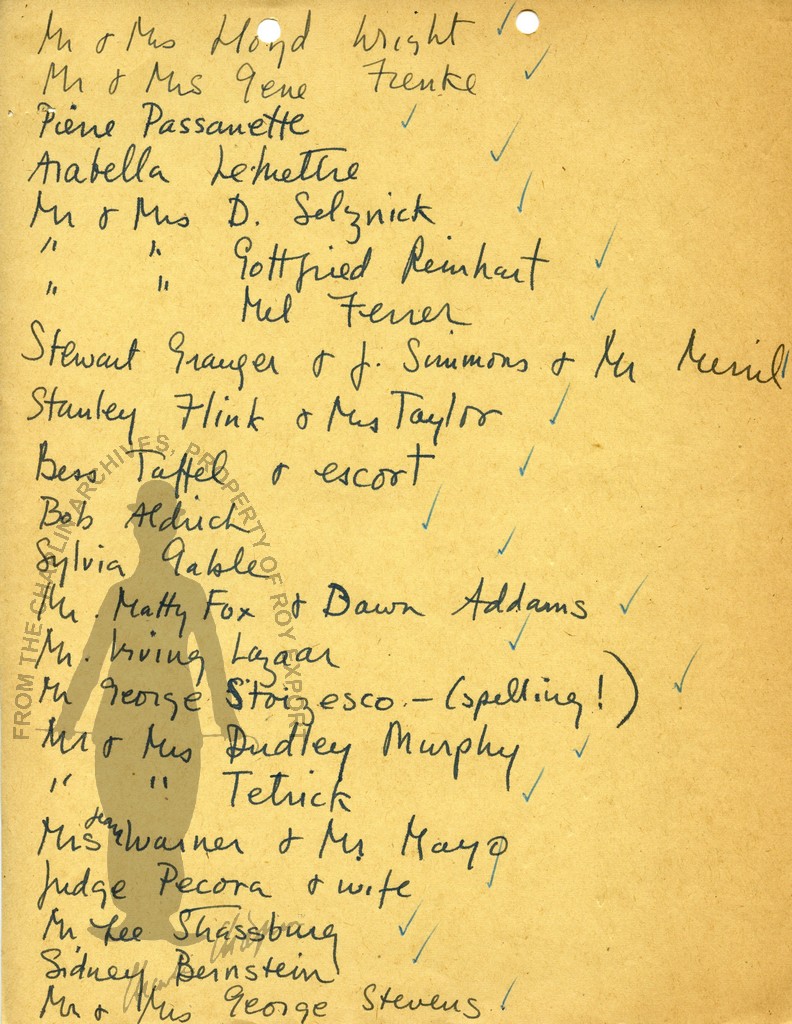 Mr & Mrs Lloyd Wright
Mr & Mrs Gene Frenke
Pierre Passanette
Arabella Lemettre
Mr & Mrs D. Selznick
" " Gottfried Reinhart
" " Mel Ferrer
Stewart Granger & J. Simmons & Mr Merrill
Stanley Flink & Mrs Taylor
Bess Taffel & escort
Bob Aldrich
Sylvia Gable
Mr. Matty Fox & Dawn Addams
Mr. Irving Lazaar
Mr George Stoizesco - (spelling!)
Mr & Mrs Dudley Murphy
" " Tetrick
Mrs Warner & Mr Mayo
Judge Pecora & wife
Mr Lee Strassburg
Sidney Bernstein
Mr & Mrs George Stevens
FROM THE CHAPLIN ARCHIVES, PROPERTY OF ROY EXPORT